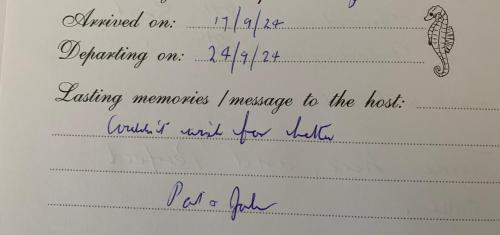 Arrived on: 17/9/24
Departing on: 24/9/24
Lasting memories / message to the host:
Couldn't wish for better
Pat & John